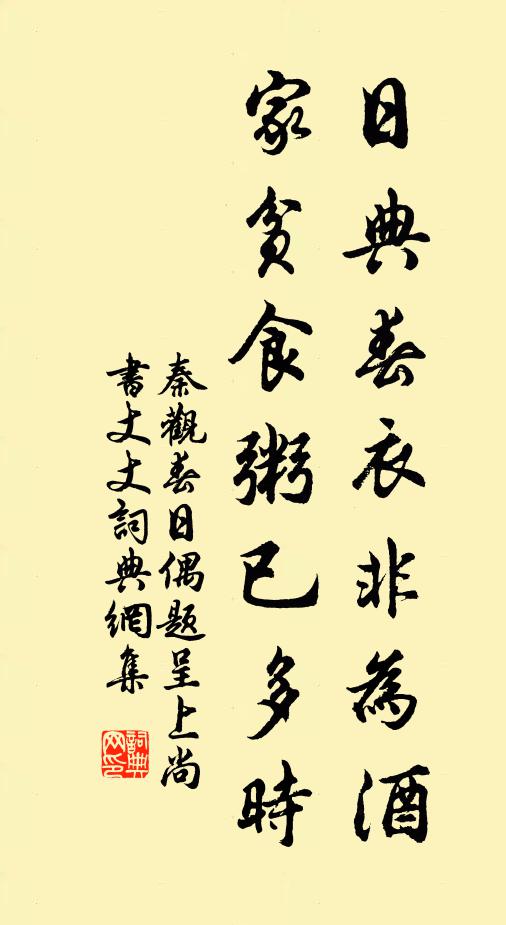 日典春衣非為酒
家貧食粥已多時
秦觀春日偶題呈上尚
書丈丈詞典網集
詞典
网印